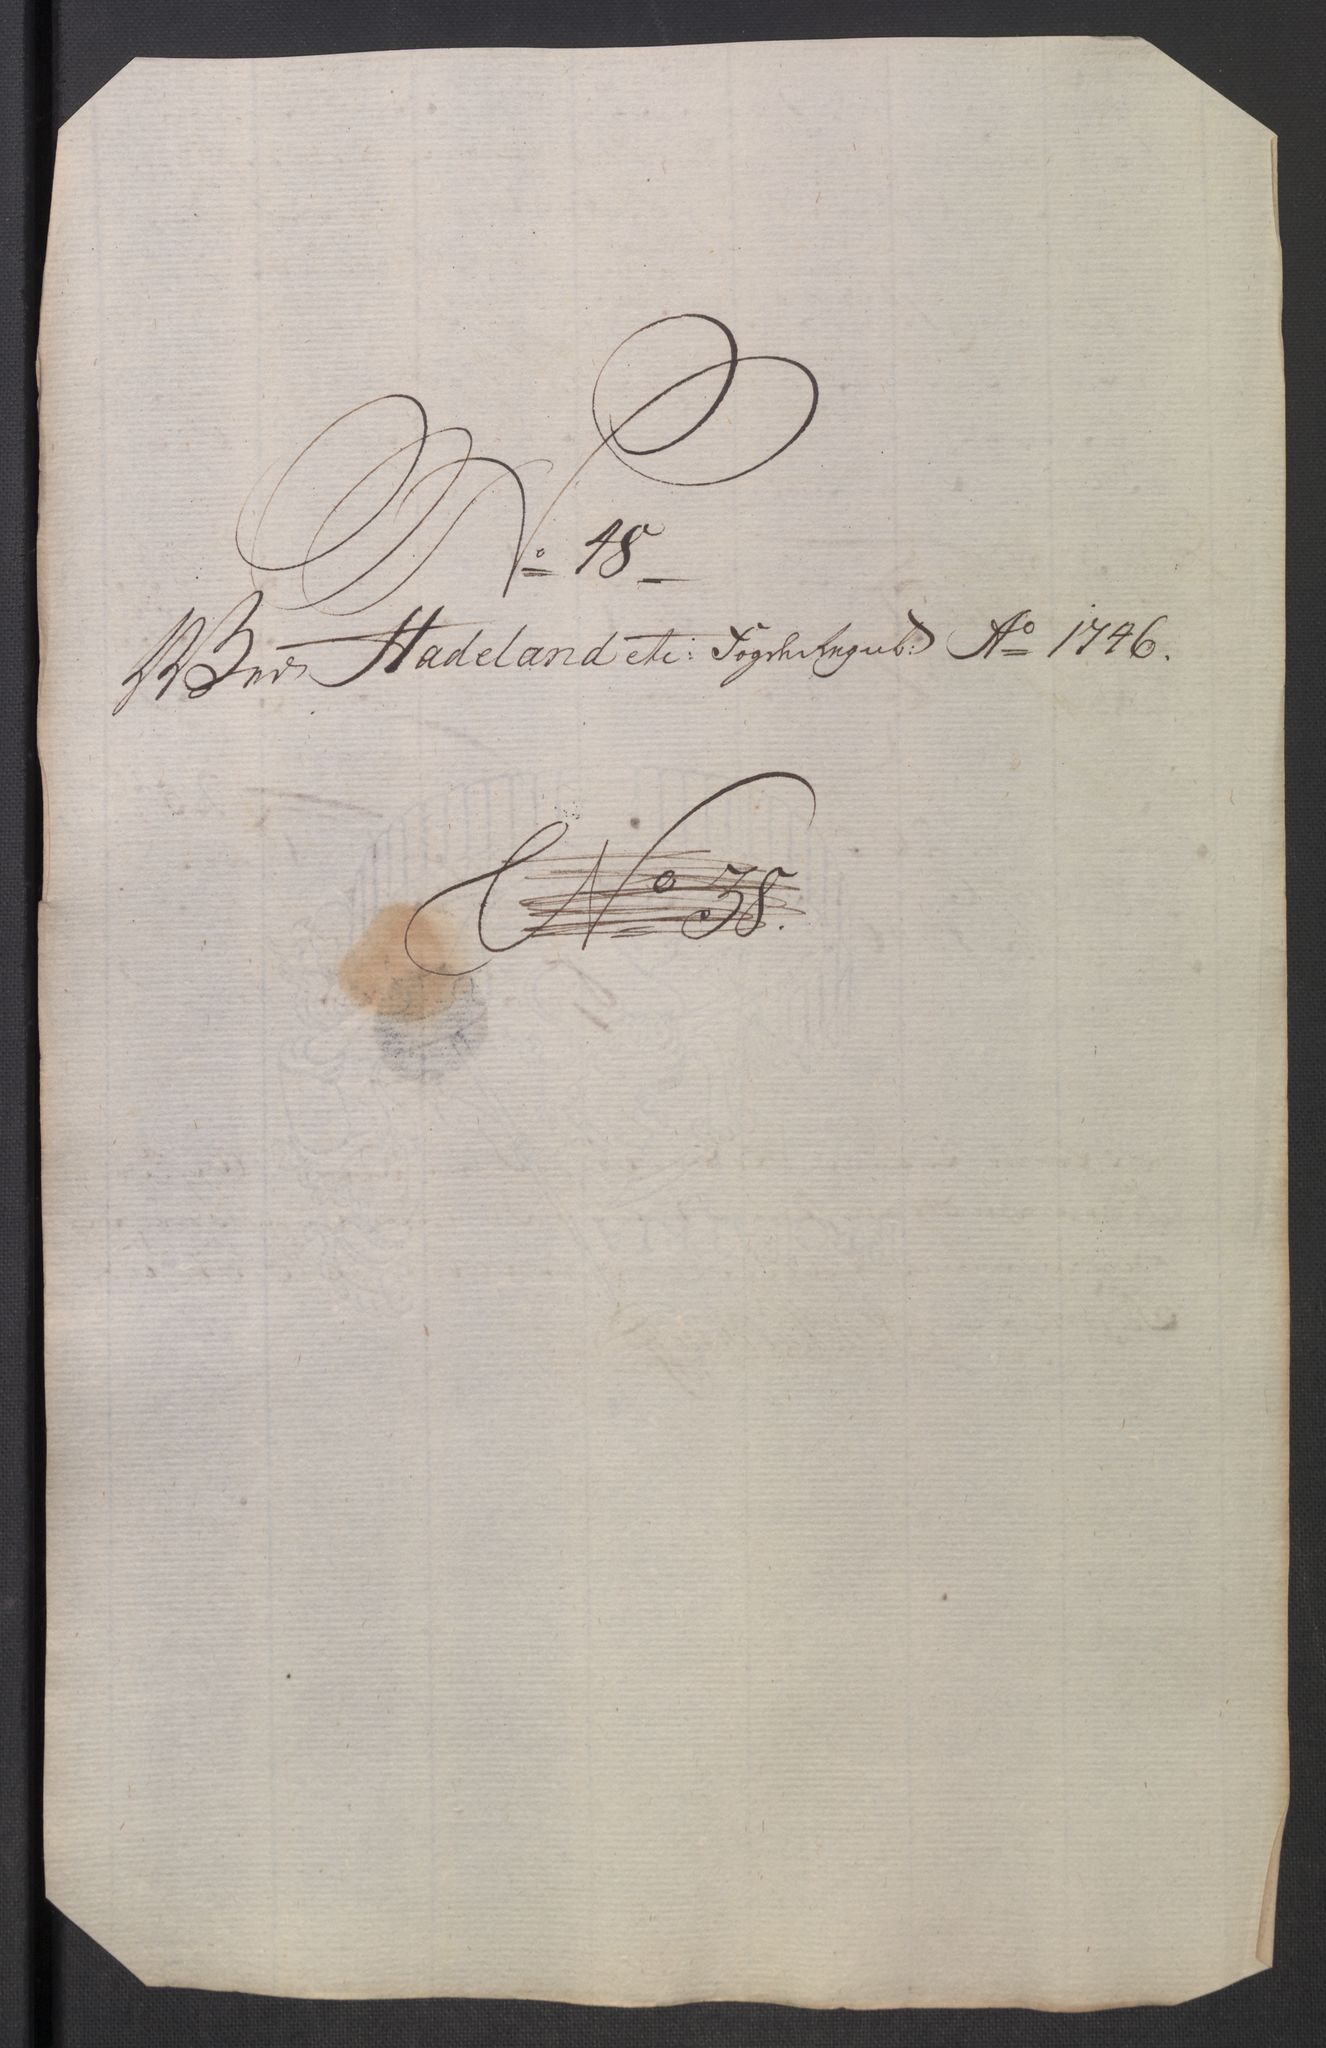 No 48
Ved Hadeland etc: Fogderegnsk: Ao 1746.
No 38.